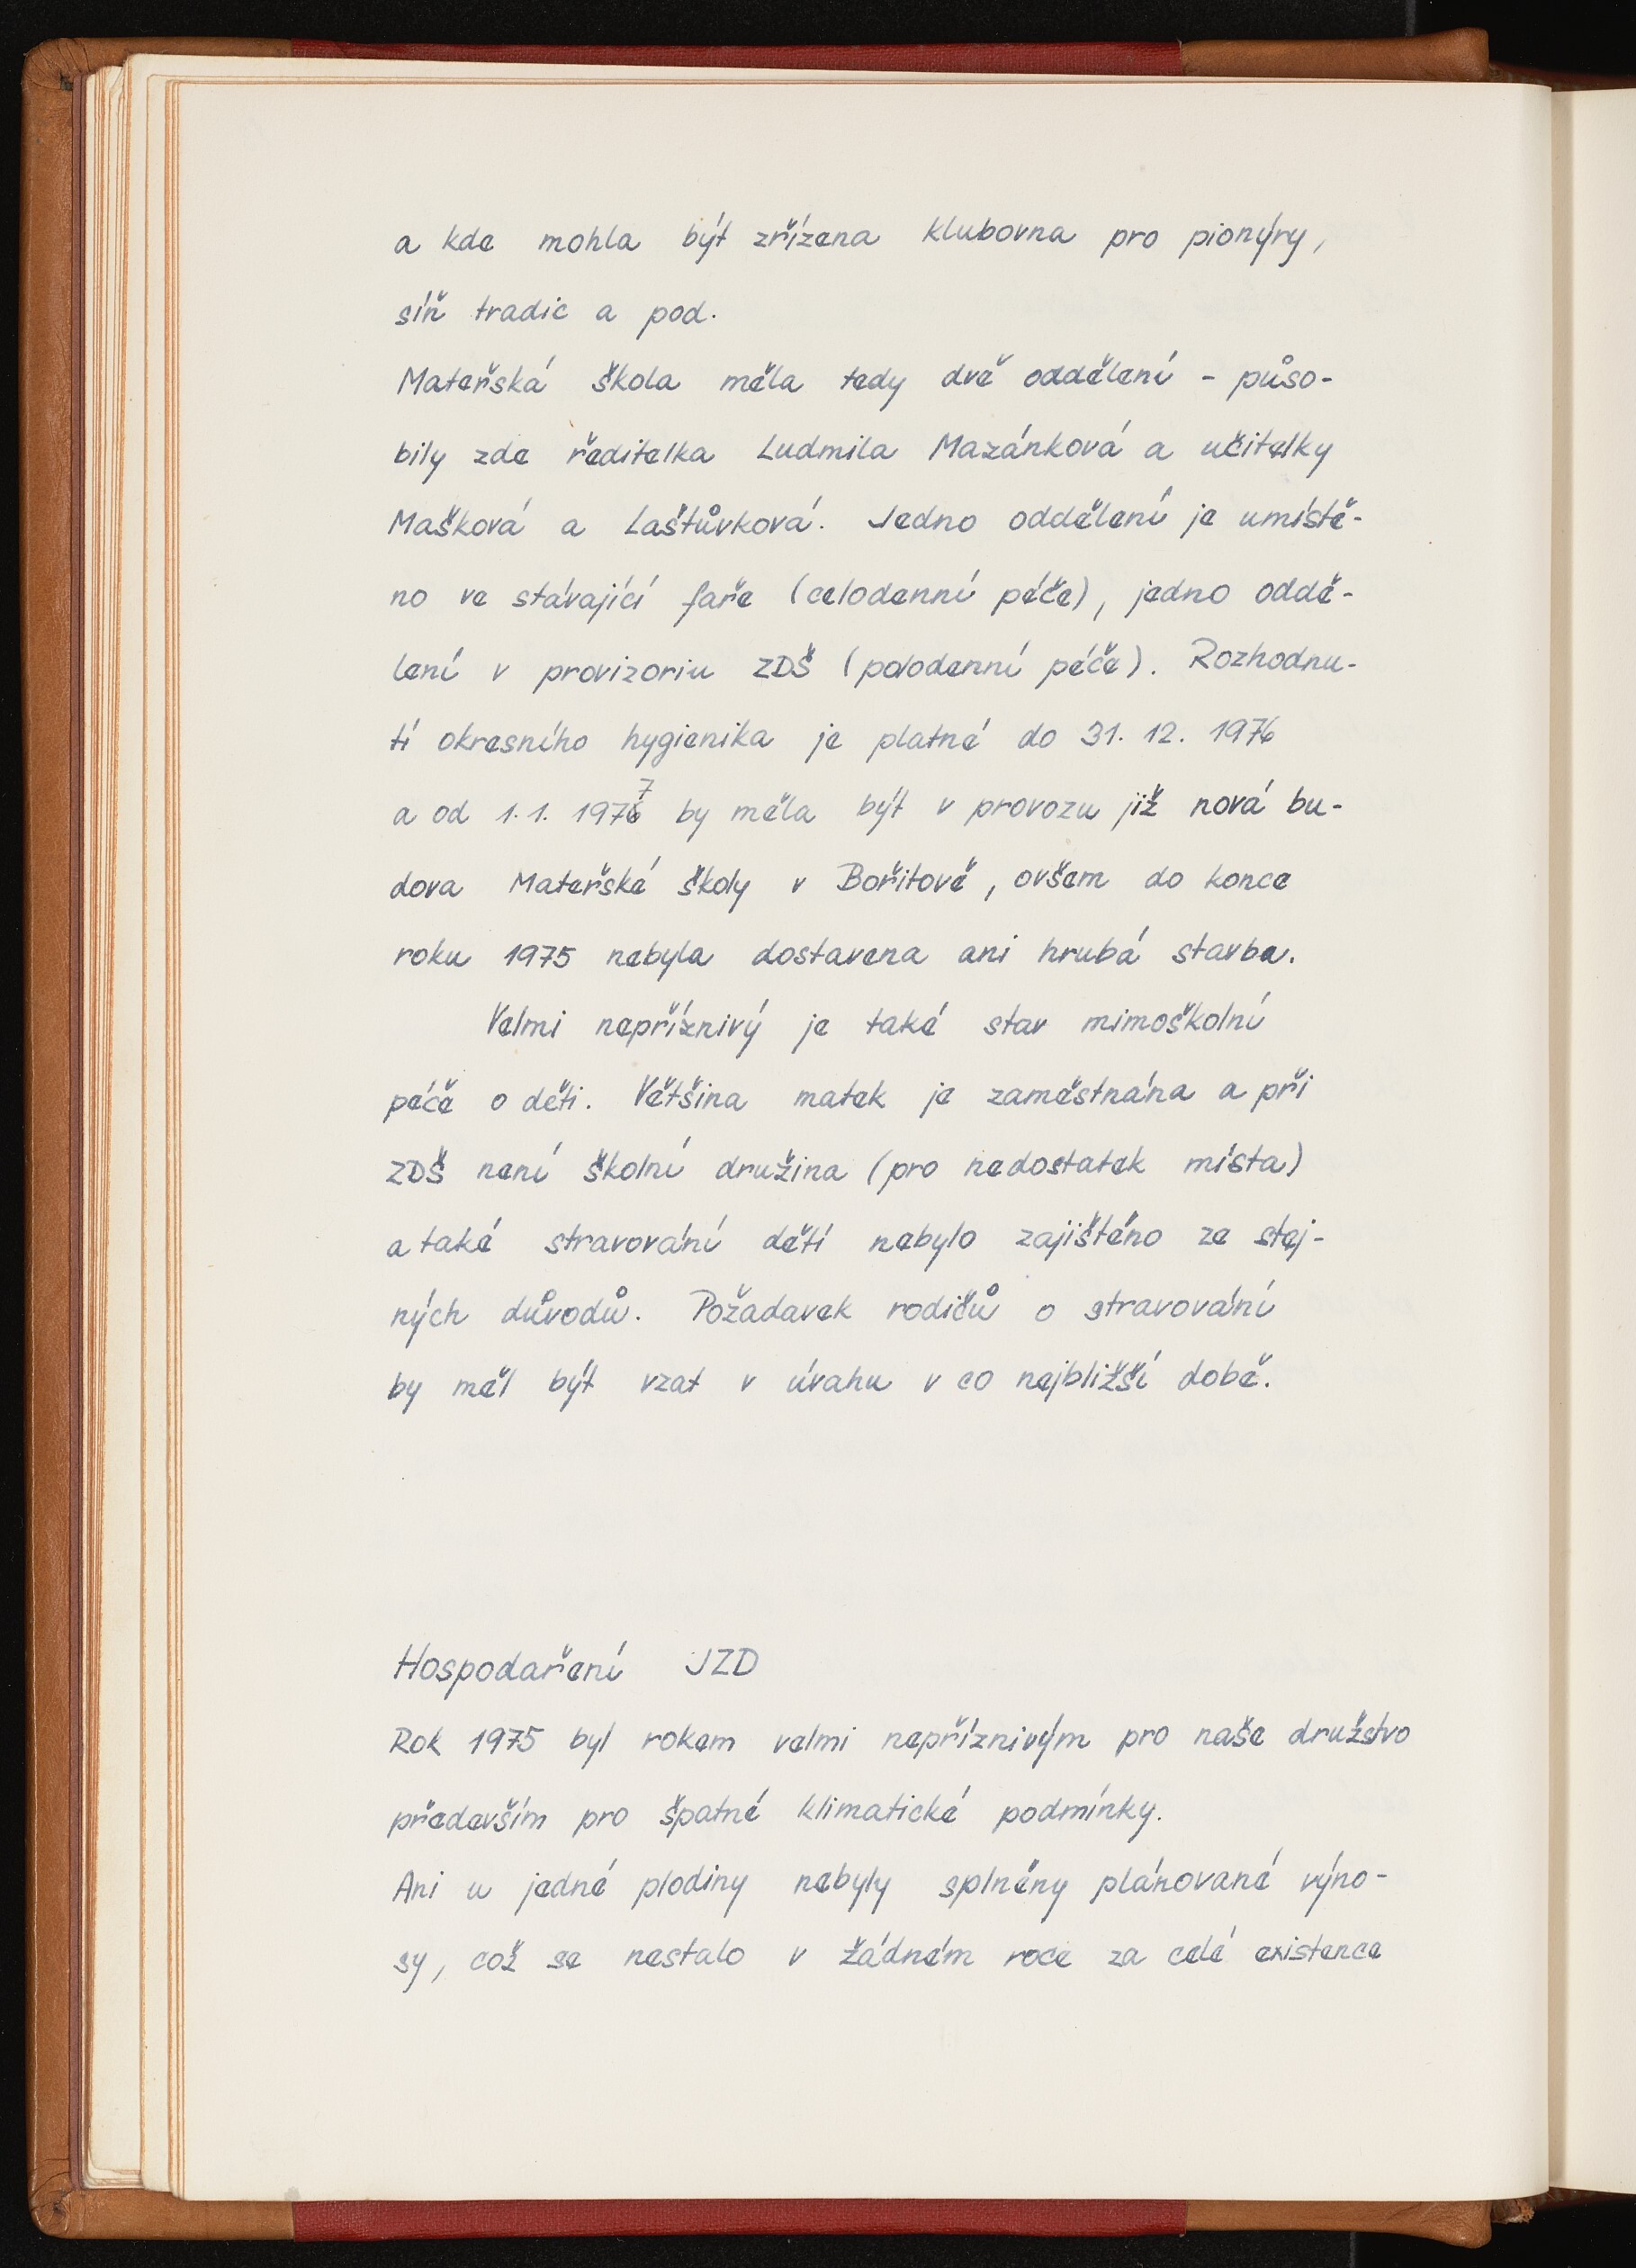 a kde mohla být zřízena klubovna pro pionýry,
síň tradic a pod.
Mateřská škola měla tedy dvě oddělení - půso-
bily zde ředitelka Ludmila Mazánková a učitelky
Mašková a Laštůvková. Jedno oddělení je umístě-
no ve stávající faře (celodenní péče), jedno oddě-
lení v provizoriu ZDŠ (polodenní péče). Rozhodnu-
tí okresního hygienika je platné do 31. 12. 1976
a od 1. 1. 1977 by měla být v provozu již nová bu-
dova Mateřské školy v Bořitově, ovšem do konce
roku 1975 nebyla dostavena ani hrubá stavba.
Velmi nepříznivý je také stav mimoškolní
péče o děti. Většina matek je zaměstnána a při
ZDŠ není školní družina (pro nedostatek místa)
a také stravování dětí nebylo zajištěno ze stej-
ných důvodů. Požadavek rodičů o stravování
by měl být vzat v úvahu v co nejbližší době.
Hospodaření JZD
Rok 1975 byl rokem velmi nepříznivým pro naše družstvo
především pro špatné klimatické podmínky.
Ani u jedné plodiny nebyly splněny plánované výno-
sy, což se nestalo v žádném roce za celé existence